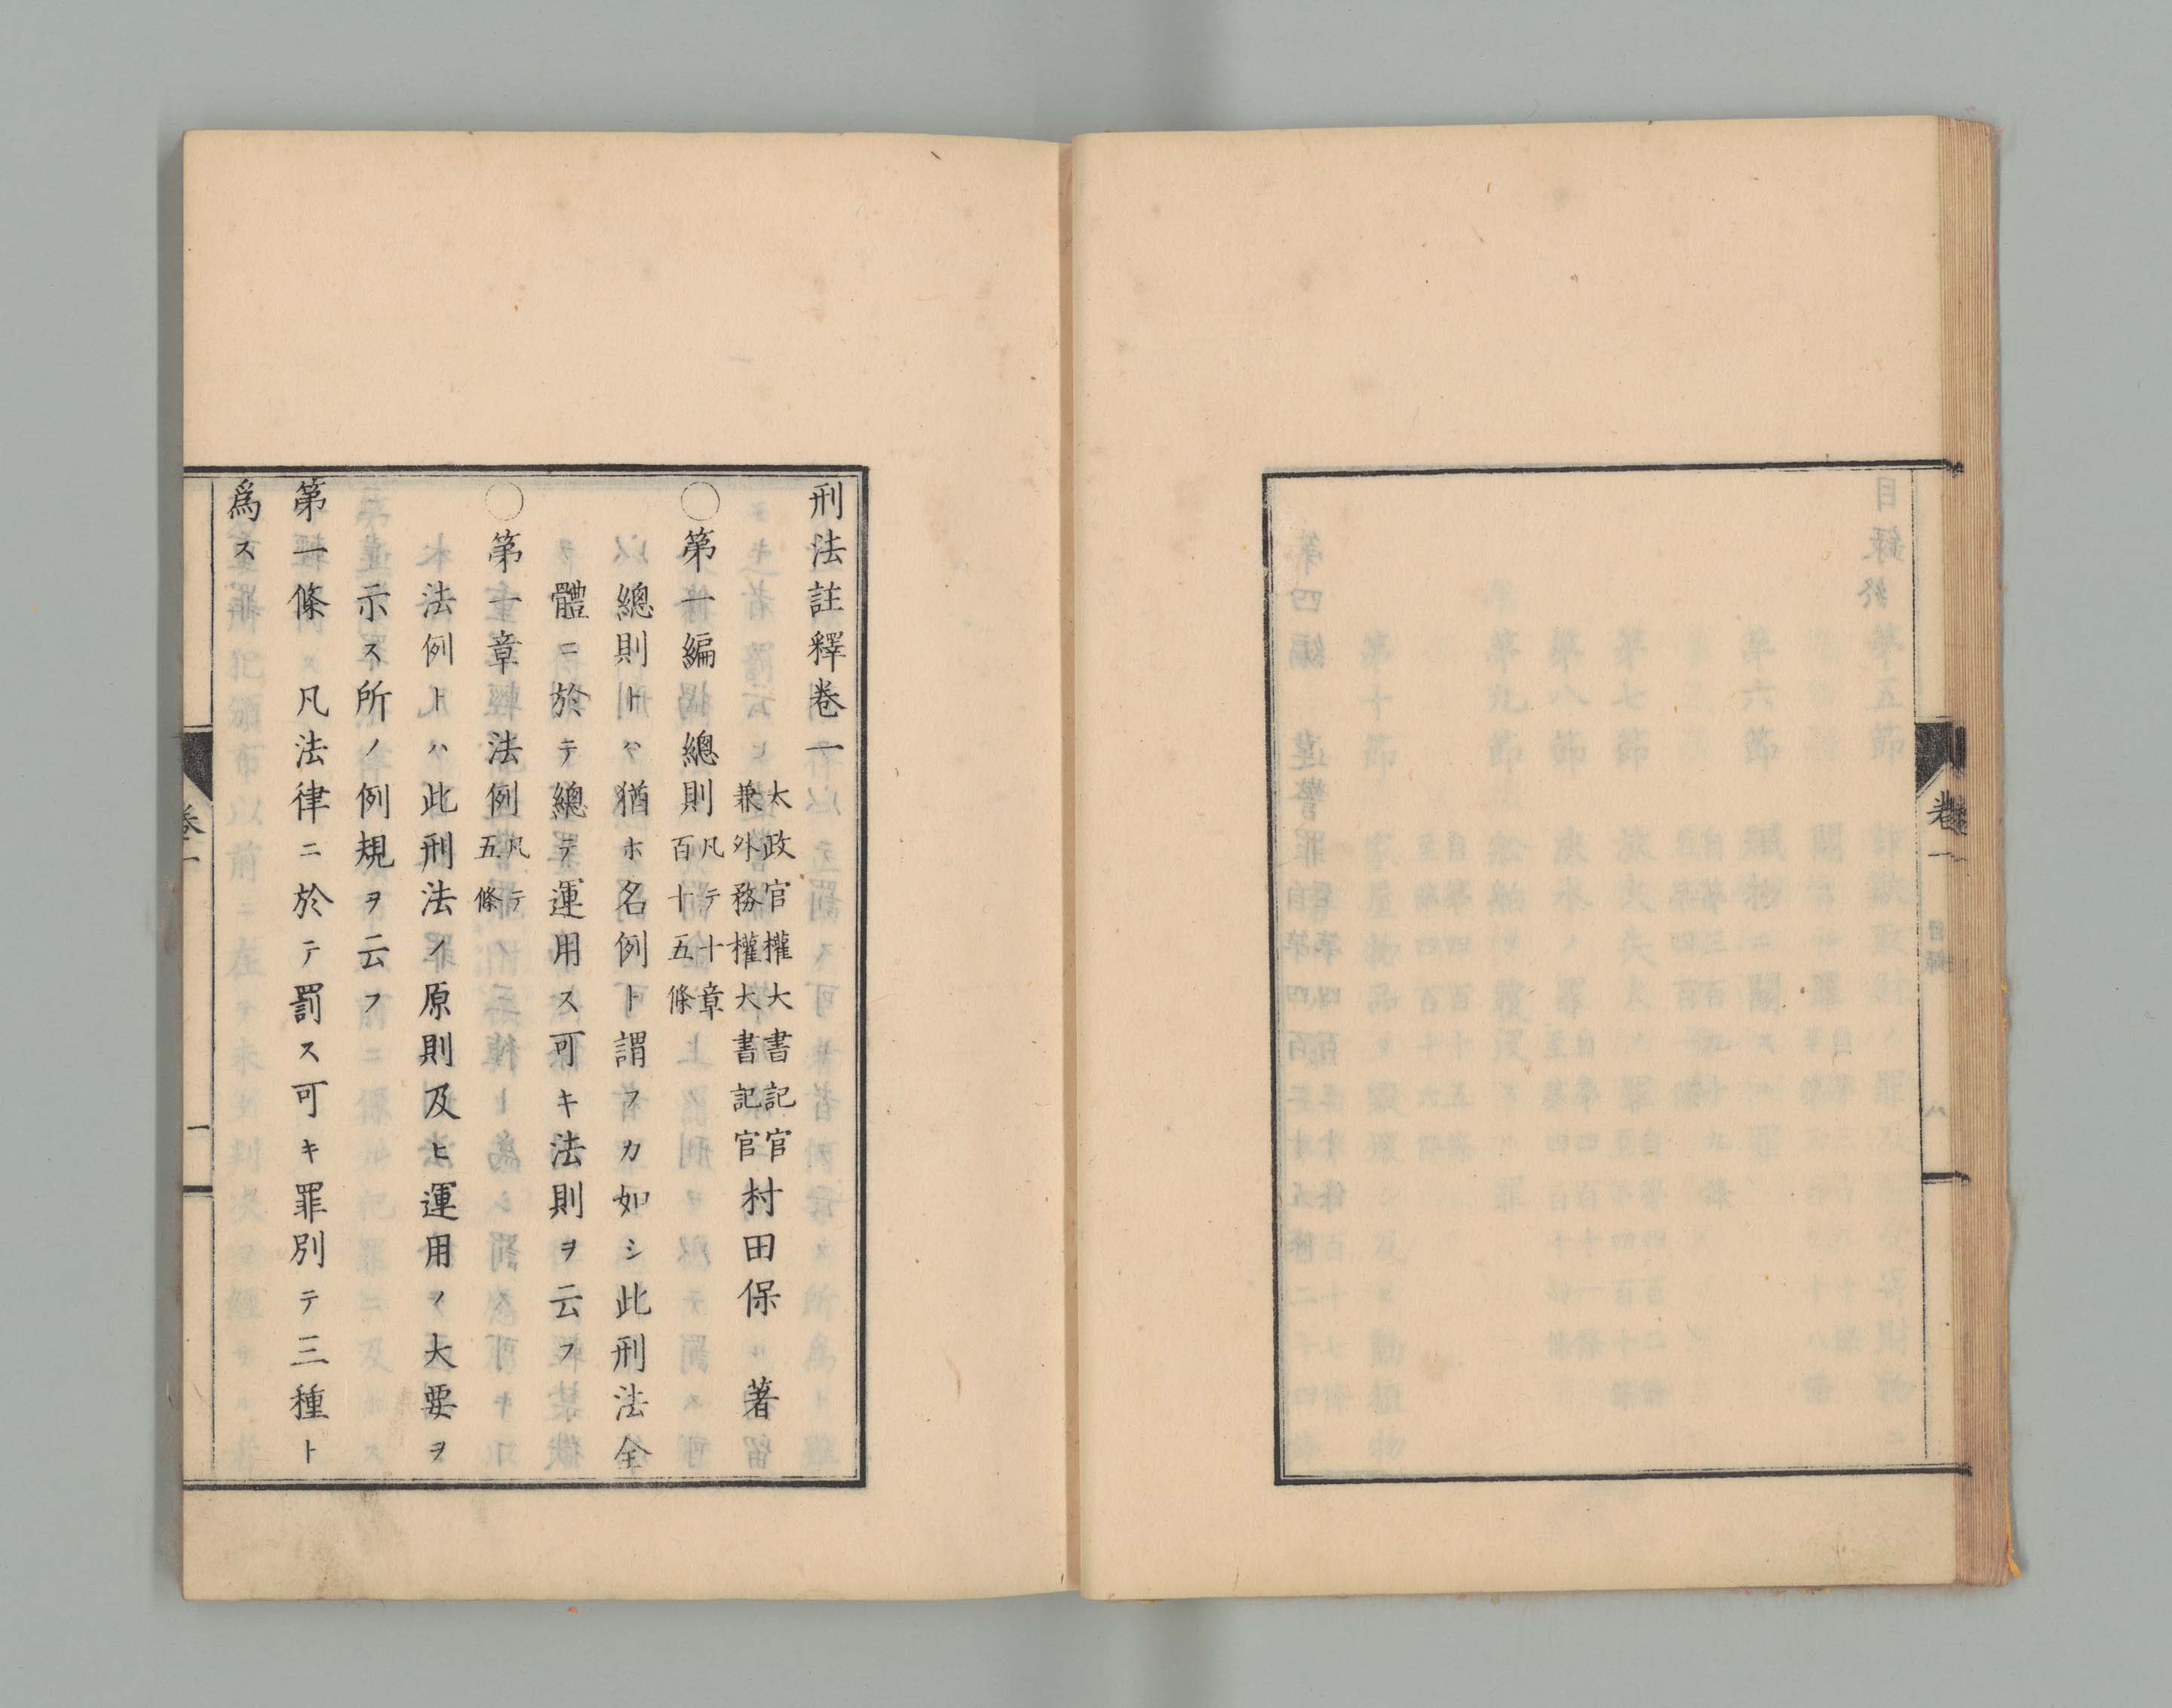 卷一
目錄
八
刑法註釋卷一
太政官權大書記官
兼外務權大書記官
村田保　著
○第一編　總則
凡テ十章
百十五條
總則トハ猶ホ名例ト謂フカ如シ此刑法全
體ニ於テ總テ運用ス可キ法則ヲ云フ
○第一章　法例
凡テ
五條
法例トハ此刑法ノ原則及ヒ運用ノ大要ヲ
示ス所ノ例規ヲ云フ
第一條　凡法律ニ於テ罰ス可キ罪別テ三種ト
爲ス
卷一
一